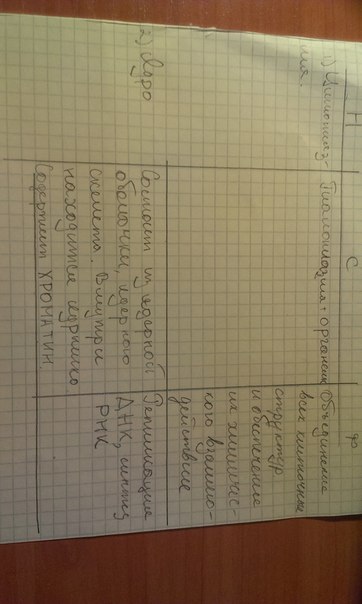 Н
С
Ф
1) Цитоплаз-
ма.
Гиалоплазма + органеллы
Объединение
всех клеточных
структур
и обеспечение
их химичес-
кого взаимо-
действия
2) Ядро
Состоит из ядерной
оболочки, ядерного
скелета. Внутри
находится ядрышко
Содержит ХРОМАТИН.
Репликация
ДНК, синтез
РНК